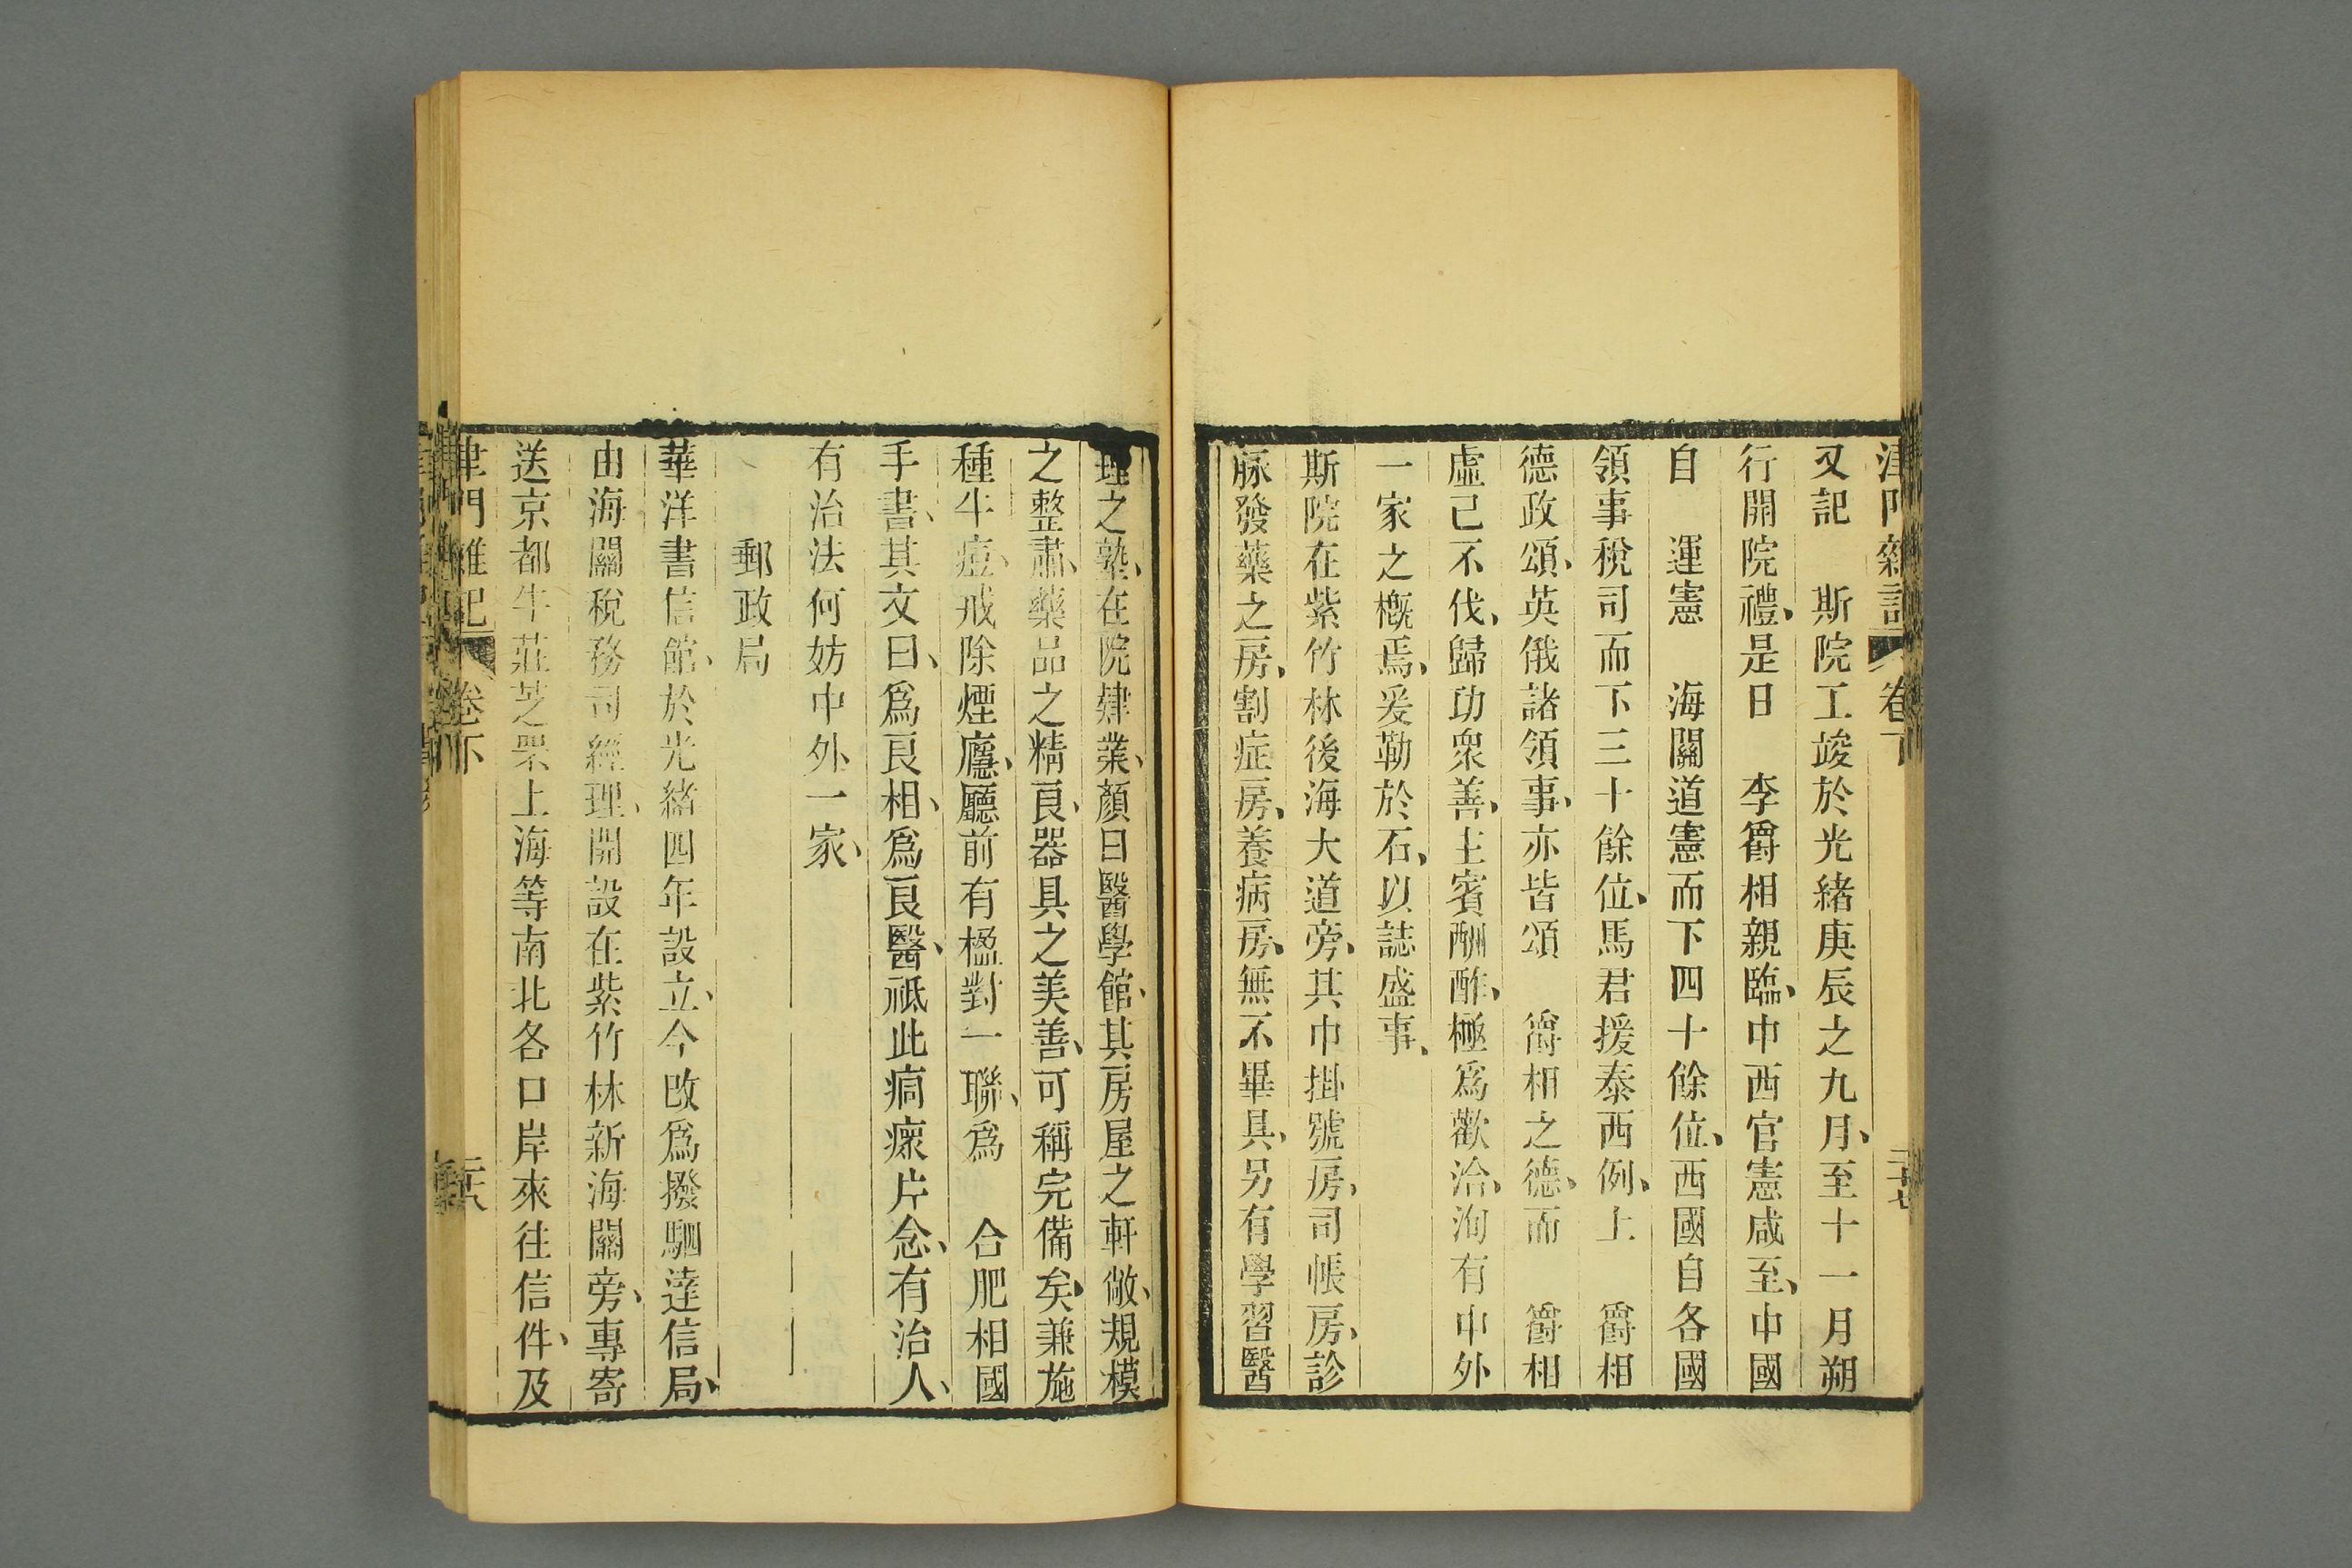 津門雜記 卷下 二十七
又記　斯院工竣於光緒庚辰之九月、至十一月朔
行開院禮、是日　李爵相親臨、中西官憲咸至、中國
自　運憲　海關道憲而下四十餘位、西國自各國
領事稅司而下三十餘位、馬君援泰西例、上　爵相
德政頌、英俄諸領事、亦皆頌　爵相之德、而　爵相
虛己不伐、歸功衆善、主賓酬酢、極爲歡洽、洵有中外
一家之槪焉、爰勒於石、以誌盛事、
斯院在紫竹林後海大道旁、其中掛號房、司帳房、診
脉發藥之房、割症房、養病房、無不畢具、另有學習醫
理之塾、在院肄業、顏曰醫學館、其房屋之軒敞、規模
之整肅、藥品之精良、器具之美善、可稱完備矣、兼施
種牛痘、戒除煙癮、廳前有楹對一聯、爲　合肥相國
手書、其文曰、爲良相、爲良醫、祗此痌瘝片念、有治人、
有治法何妨中外一家、
郵政局
華洋書信館、於光緒四年設立、今改爲撥駟達信局、
由海關稅務司經理、開設在紫竹林新海關旁、專寄
送京都牛莊芝罘上海等南北各口岸來往信件、及
津門雜記 卷下 二十八